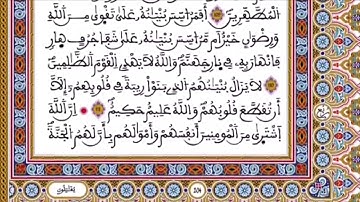 اَ۬لْمُطَّهِّرِينَ أَفَمَنُ ا۟سِّسَ بُنْيَٰنُهُۥ عَلَىٰ تَقْوَىٰ مِنَ اَ۬للَّهِ
وَرِضْوَٰنٍ خَيْرٌ اَم مَّنُ ا۟سِّسَ بُنْيَٰنُهُۥ عَلَىٰ شَفَا جُرُفٍ هَارٖ
فَانْهَارَ بِهِۦ فِے نَارِ جَهَنَّمَ وَاللَّهُ لَا يَهْدِے اِ۬لْقَوْمَ اَ۬لظَّٰلِمِينَ
لَا يَزَالُ بُنْيَٰنُهُمُ اُ۬لذِے بَنَوْاْ رِيبَةٗ فِے قُلُوبِهِمُۥٓ إِلَّآ
أَن تُقَطَّعَ قُلُوبُهُمْ وَاللَّهُ عَلِيمٌ حَكِيمٌ إِنَّ اَ۬للَّهَ
اَ۪شْتَر۪ىٰ مِنَ اَ۬لْمُومِنِينَ أَنفُسَهُمْ وَأَمْوَٰلَهُم بِأَنَّ لَهُمُ اُ۬لْجَنَّةَ
يُقَٰتِلُونَ
204